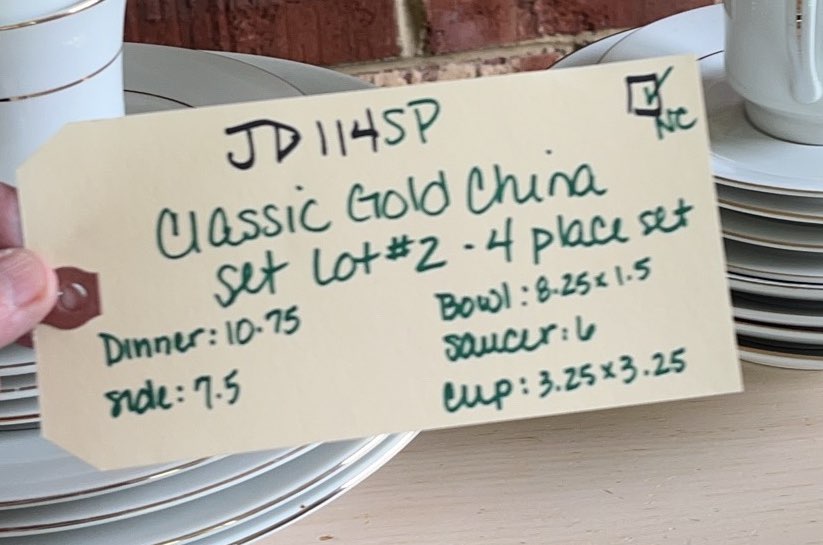 JD114SP
NC
Classic Gold China
Set Lot #2 - 4 place set
Dinner: 10.75
Bowl: 8.25 x 1.5
side: 7.5
saucer: 6
cup: 3.25 x 3.25